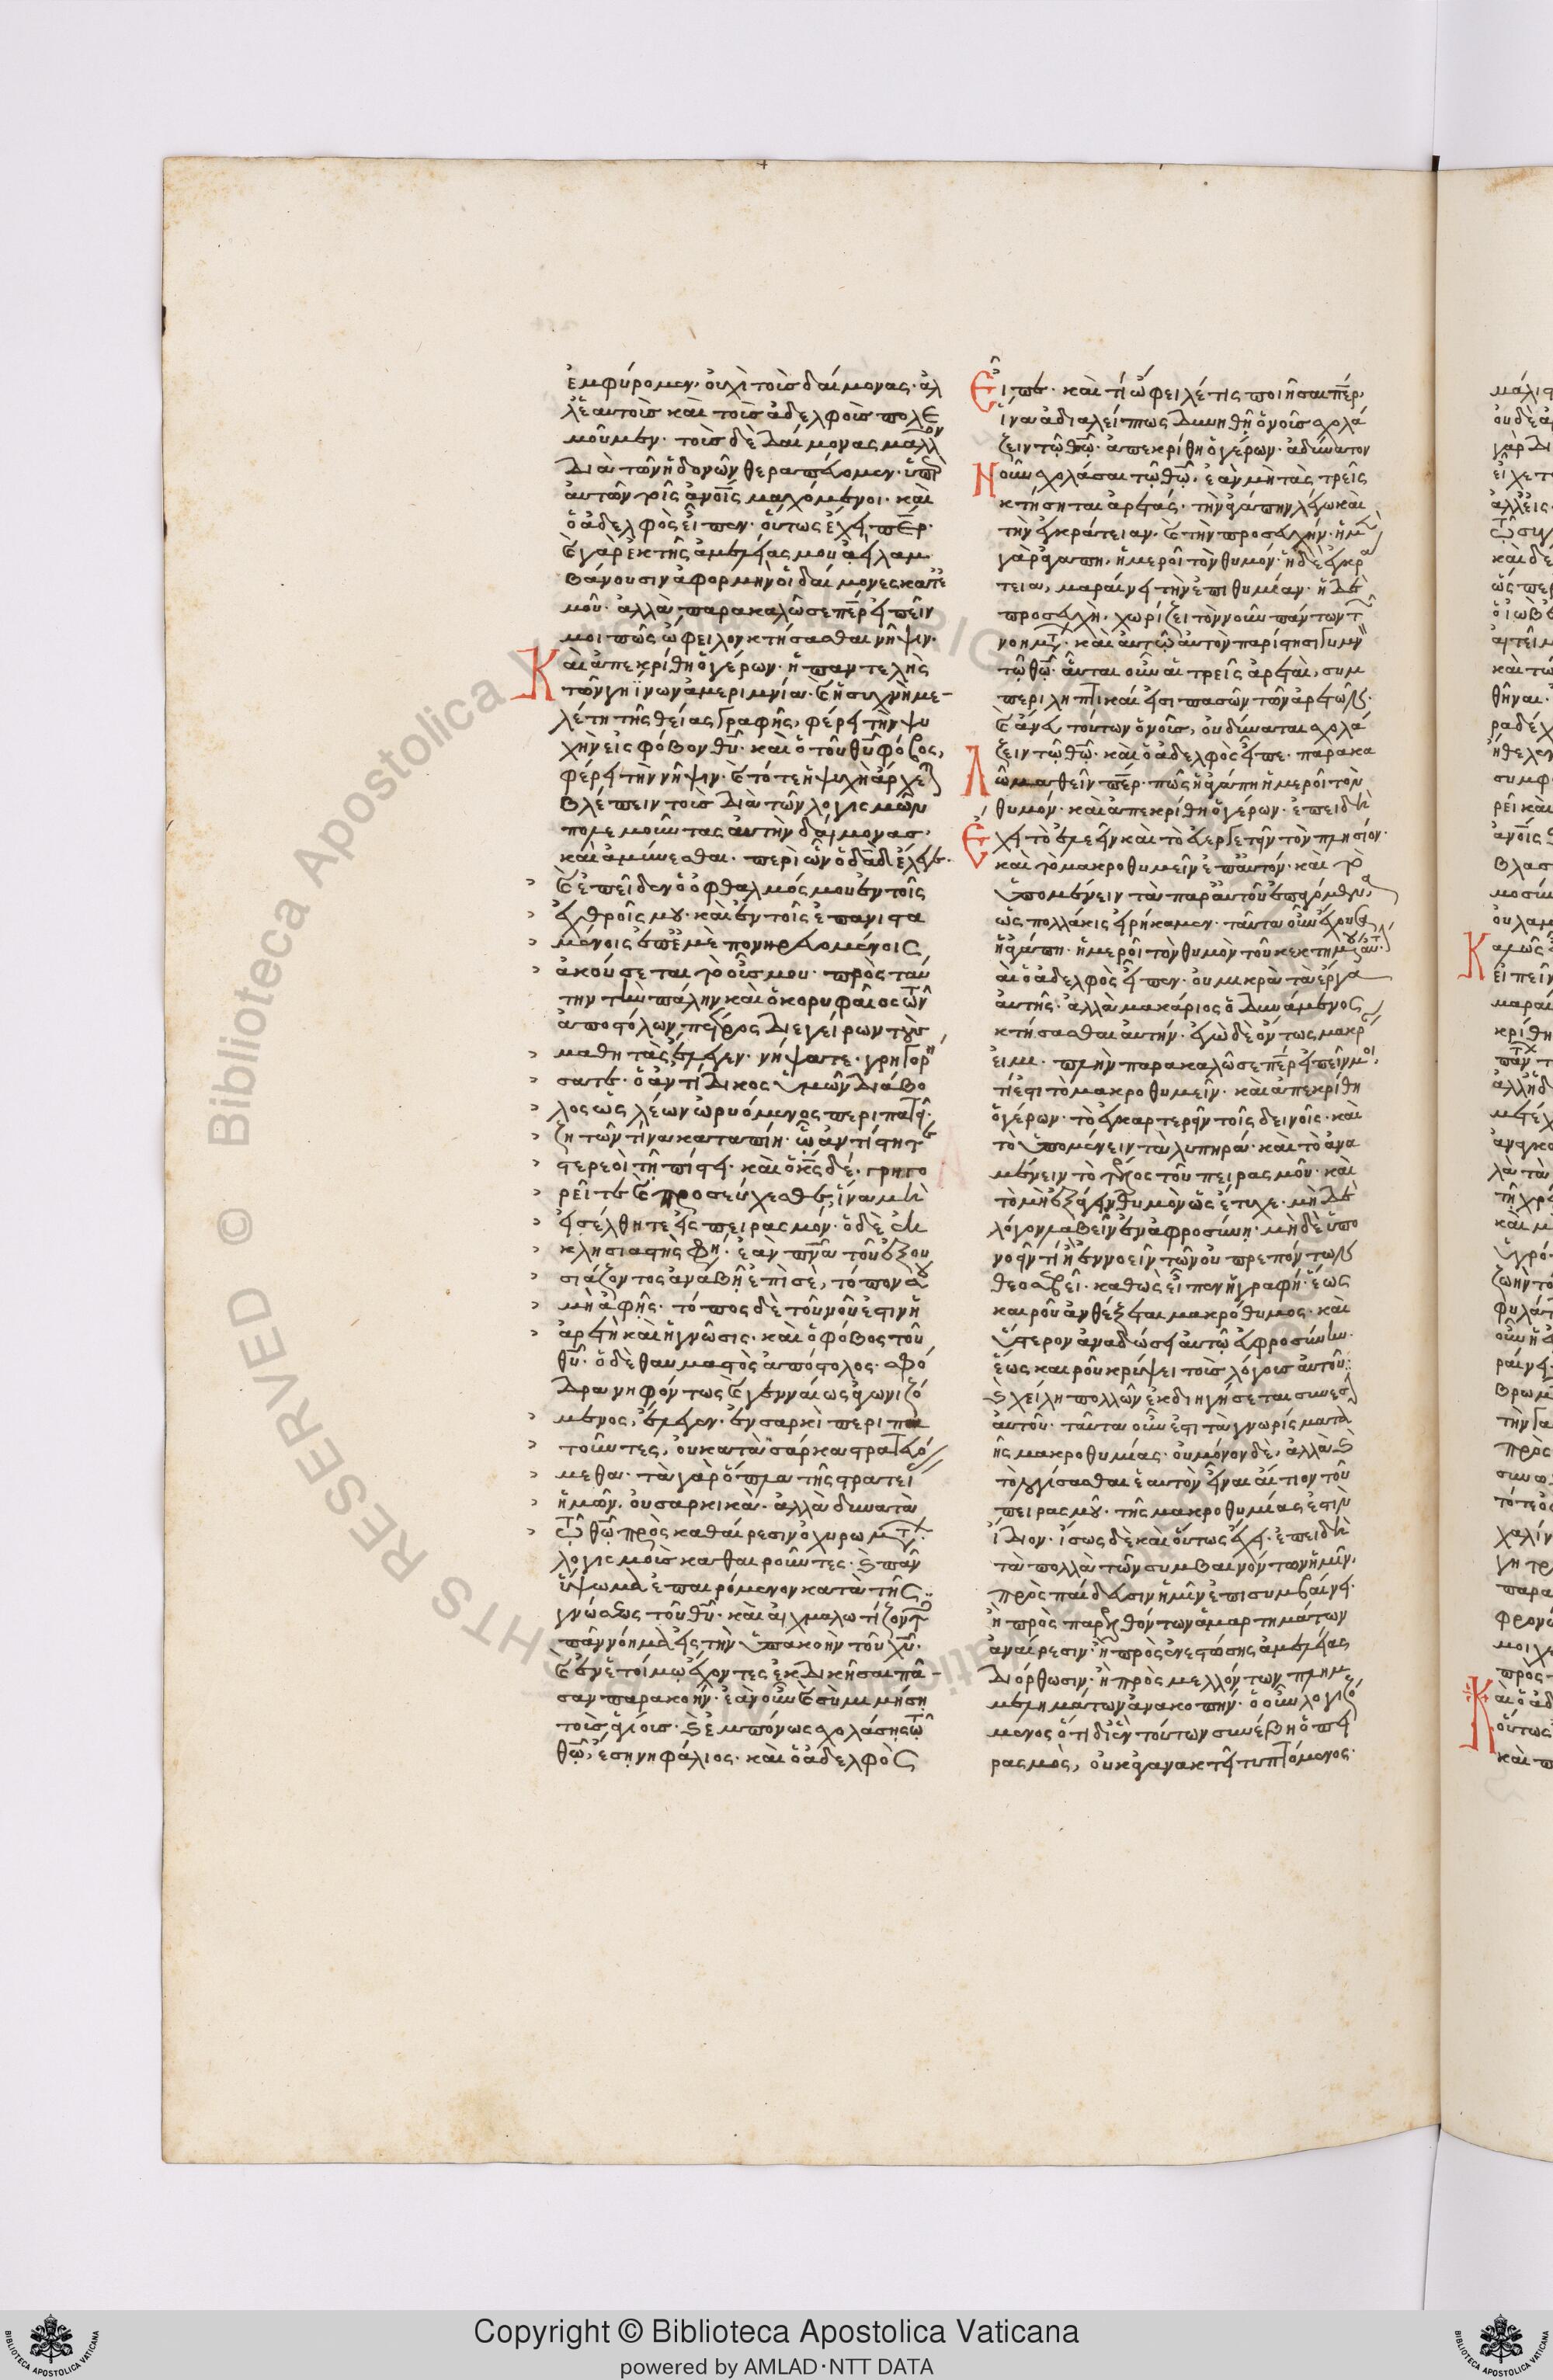 ἐμφύρομεν, οὐχὶ τοῖς δαίμονας· ἀλ
λ' ἑαυτοῖς καὶ τοῖς ἀδελφοῖς πολε
μοῦμεν· τοῖς δὲ δαίμονας μᾶλλον
διὰ τῶν ἡδονῶν θεραπεύομεν· ὑπὲρ
αὐτῶν τοῖς ἀνοις μαχόμενοι· καὶ
ὁ ἀδελφὸς εἶπεν· οὕτως ἔχει περ·
ἐκ τῆς ἀμελείας μου ἀεὶ λαμ
βάνουσιν ἀφορμὴν οἱ δαίμονες κατ' ἐ
μοῦ· ἀλλὰ παρακαλῶ σε περ εἰπεῖν
μοι πῶς ὤφειλον κτήσασθαι νῆψιν·
Καὶ ἀπεκρίθη ὁ γέρων· ἡ παντελὴς
τῶν γηΐνων ἀμεριμνία· καὶ ἡ συχνὴ με-
λέτη τῆς θείας γραφῆς, φέρει τὴν ψυ
χὴν εἰς φόβον θυ· καὶ ὁ τοῦ θυ φόβος,
φέρει τὴν νῆψιν· καὶ τότε ἡ ψυχὴ ἄρχεται
βλέπειν τοῖς διὰ τῶν λογισμῶν
πολεμοῦντας αὐτὴν δαίμονας,
καὶ ἀμύνεσθαι· περὶ ὧν ὁ δαδ ἔλεγε·
καὶ ἐπεῖδεν ὁ ὀφθαλμός μου ἐν τοῖς
ἐχθροῖς μου· καὶ ἐν τοῖς ἐπανιστα
μένοις ἐπ' ἐμὲ πονηρευομένοις
ἀκούσεται τὸ οὖς μου· πρὸς ταύ
την τὴν πάλην καὶ ὁ κορυφαῖος τῶν
ἀποστόλων πέτρος διεγείρων τοὺς
μαθητὰς ἔλεγεν· νήψατε· γρηγορή
σατε· ὁ ἀντίδικος ὑμῶν διάβο
λος ὡς λέων ὠρυόμενος περιπατεῖ·
ζητῶν τίνα καταπίῃ· ᾧ ἀντίστητε
στερεοὶ τῇ πίστει· καὶ ὁ κς δέ· γρηγο
ρεῖτε καὶ προσεύχεσθε, ἵνα μὴ
εἰσέλθητε εἰς πειρασμόν· ὁ δὲ ἐκ
κλησιαστὴς φη· ἐὰν πνα τοῦ ἐξου
σιάζοντος ἀναβῇ ἐπὶ σὲ, τόπον σου
μὴ ἀφῇς· τόπος δὲ τοῦ νοῦ ἐστιν ἡ
ἀρετὴ καὶ ἡ γνῶσις· καὶ ὁ φόβος τοῦ
θυ· ὁ δὲ θαυμαστὸς ἀπόστολος· σφό
δρα νηφόντως καὶ γενναίως ἀγωνιζό
μενος, ἔλεγεν· ἐν σαρκὶ περιπα
τοῦντες, οὐ κατὰ σάρκα στρατευό
μεθα· τὰ γὰρ ὅπλα τῆς στρατεί
ἡμῶν, οὐ σαρκικὰ· ἀλλὰ δυνατὰ
τῷ θῷ πρὸς καθαίρεσιν ὀχυρωμάτων·
λογισμοῖς καθαιροῦντες· καὶ πᾶν
ὕψωμα ἐπαιρόμενον κατὰ τῆς
γνώσεως τοῦ θυ· καὶ αἰχμαλωτίζοντες
πᾶν νόημα εἰς τὴν ὑπακοὴν τοῦ χυ·
καὶ ἐν ἑτοίμῳ ἔχοντες ἐκδικῆσαι πᾶ-
σαν παρακοήν· ἐὰν οὖν καὶ σὺ μιμήσῃ
τοῖς ἁγίοις· καὶ ἐμπόνως σχολάσῃς τῷ
θῷ, ἔσῃ νηφάλιος· καὶ ὁ ἀδελφὸς
Εἶπε· καὶ τί ὀφείλέ τις ποιῆσαι περ,
ἵνα ἀδιαλείπτως δυνηθῇ ὁ νοῦς σχολά
ζειν τῷ θῷ· ἀπεκρίθη ὁ γέρων· ἀδύνατον
Νοῦν σχολάσαι τῷ θῷ, ἐὰν μὴ τὰς τρεῖς
κτήσηται ἀρετάς· τὴν ἀγάπην λέγω καὶ
τὴν ἐγκράτειαν· καὶ τὴν προσευχήν· ἡ μὲν
γὰρ ἀγάπη, ἡμεροῖ τὸν θυμόν· ἡ δὲ ἐγκρά
τεια, μαραίνει τὴν ἐπιθυμίαν· ἡ δὲ
προσευχὴ, χωρίζει τὸν νοῦν πάντων τῶν
νοημάτων· καὶ αὐτῷ αὐτὸν παρίστησι γυμνὸν
τῷ θῷ· αὗται οὖν αἱ τρεῖς ἀρεταὶ, συμ
περιληπτικαί εἰσι πασῶν τῶν ἀρετῶν·
καὶ ἄνευ τούτων ὁ νοῦς, οὐ δύναται σχολά
ζειν τῷ θῷ· καὶ ὁ ἀδελφὸς εἶπε· παρακα
Λῶ μαθεῖν περ· πῶς ἡ ἀγάπη ἡμεροῖ τὸν
θυμόν· καὶ ἀπεκρίθη ὁ γέρων· ἐπειδὴ
Ἔχει τὸ ἐλεεῖν καὶ τὸ εὐεργετεῖν τὸν πλησίον·
καὶ τὸ μακροθυμεῖν ἐπ' αὐτόν· καὶ τὸ
ὑπομένειν τὰ παρ' αὐτοῦ ἐπαγόμενα,
ὡς πολλάκις εἰρήκαμεν· ταῦτα οὖν ἔχουσα
ἡ ἀγάπη· ἡμεροῖ τὸν θυμὸν τοῦ κεκτημένου αὐτ·
καὶ ὁ ἀδελφὸς εἶπεν· οὐ μικρὰ τὰ ἔργα
αὐτῆς· ἀλλὰ μακάριος ὁ δυνάμενος
κτήσασθαι αὐτήν· ἐγὼ δὲ ὄντως μακράν
εἰμι· πλὴν παρακαλῶ σε περ εἰπεῖν μοι,
τί ἐστι τὸ μακροθυμεῖν· καὶ ἀπεκρίθη
ὁ γέρων· τὸ ἐγκαρτερεῖν τοῖς δεινοῖς· καὶ
τὸ ὑπομένειν τὰ λυπηρά· καὶ τὸ ἀνα
μένειν τὸ τέλος τοῦ πειρασμοῦ· καὶ
τὸ μὴ ἐξάγειν θυμὸν ὡς ἔτυχε· μὴ δὲ
λόγον λαβεῖν ἐν ἀφροσύνῃ· μηδὲ ὑπο
νοεῖν τί ἢ ἐννοεῖν τῶν οὐ πρεπόντων
θεοσεβεῖ· καθὼς εἶπεν ἡ γραφή· ἕως
καιροῦ ἀνθέξεται μακρόθυμος· καὶ
ὕστερον ἀναδώσει αὐτῷ εὐφροσύνη·
ἕως καιροῦ κρύψει τοῖς λόγοις αὐτοῦ·
καὶ χείλη πολλῶν ἐκδιηγήσεται σύνεσιν
αὐτοῦ· ταῦτα οὖν ἐστι τὰ γνωρίσματα
τῆς μακροθυμίας· οὐ μόνον δὲ, ἀλλὰ καὶ
τὸ λογίσασθαι ἑαυτὸν εἶναι αἴτιον τοῦ
πειρασμοῦ· τῆς μακροθυμίας ἐστὶν
ἴδιον· ἴσως δὲ καὶ οὕτως ἔχει· ἐπειδὴ
τὰ πολλὰ τῶν συμβαινόντων ἡμῖν,
πρὸς παίδευσιν ἡμῖν ἐπισυμβαίνει·
ἢ πρὸς παρελθόντων ἁμαρτημάτων
ἀναίρεσιν· ἢ πρὸς ἐνεστώσης ἀμελείας
διόρθωσιν· ἢ πρὸς μελλόντων πλημ
μελημάτων ἀνακοπήν· ὁ οὖν λογιζό
μενος ὅτι δι' ἓν τούτων συνέβη ὁ πει
ρασμὸς, οὐκ ἀγανακτεῖ τυπτόμενος·
Copyright © Biblioteca Apostolica Vaticana
powered by AMLAD·NTT DATA